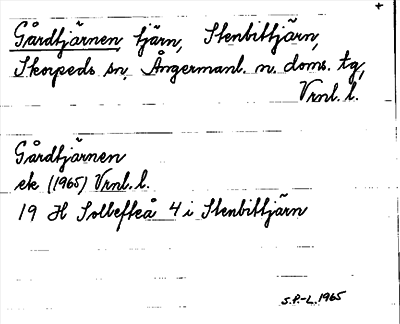 +
Gårdtjärnen, tjärn, Stenbittjärn,
Skorpeds sn, Ångermanl. n. doms. tg,
Vrnl. l.
Gårdtjärnen
ek (1965) Vrnl. l.
19 H Sollefteå 4 i Stenbittjärn
S.P.-L. 1965